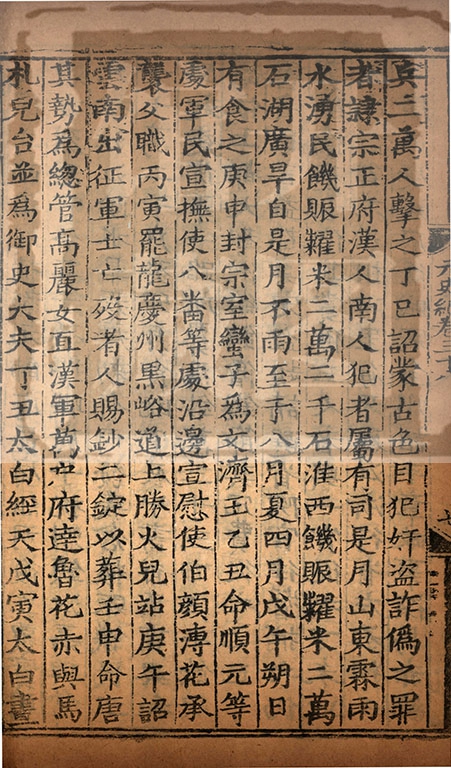 元史紀卷三十
七
兵二萬人擊之丁巳詔蒙古色目犯奸盜詐僞之罪
者隷宗正府漢人南人犯者屬有司是月山東霖雨
水湧民饑賑糶米二萬二千石淮西饑賑糶米二萬
石湖廣旱自是月不雨至于八月夏四月戊午朔日
有食之庚申封宗室蠻子爲文濟王乙丑命順元等
處軍民宣撫使八番等處沿邊宣慰使伯顔溥花承
襲父職丙寅罷龍慶州黒峪道上勝火兒站庚午詔
雲南出征軍士亡歿者人賜鈔二錠以葬壬申命唐
其勢爲緫管高麗女直漢軍萬户府逹魯花赤與馬
札兒台並爲御史大夫丁丑太白經天戊寅太白晝